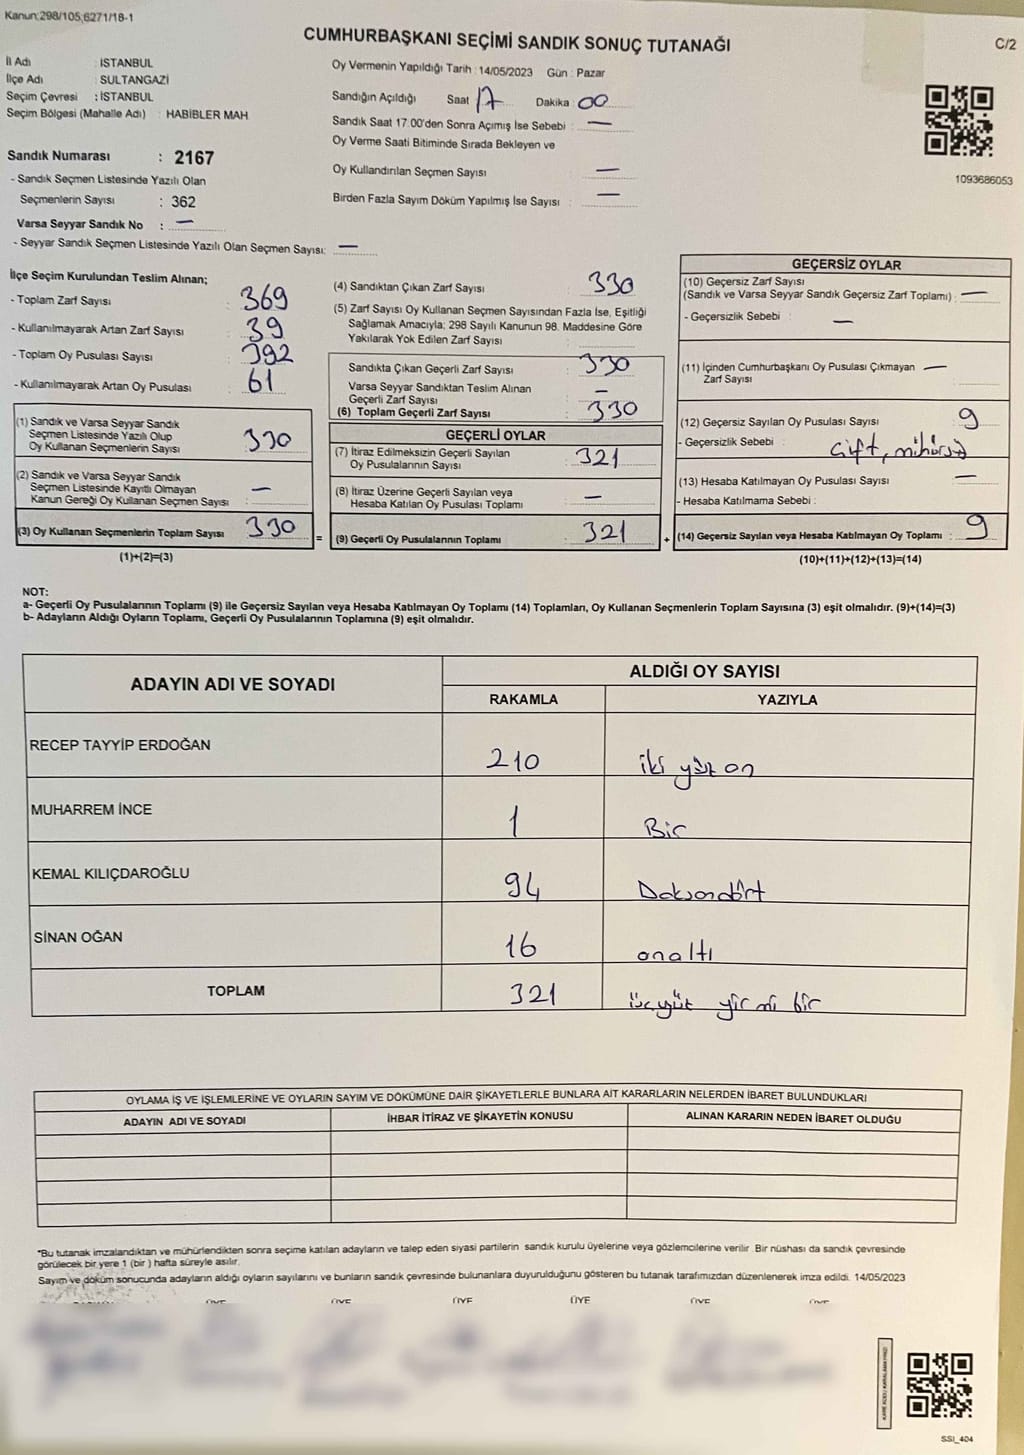 Kanun:298/105,6271/18-1
CUMHURBAŞKANI SEÇİMİ SANDIK SONUÇ TUTANAĞI
C/2
İl Adı : İSTANBUL
İlçe Adı : SULTANGAZİ
Seçim Çevresi : İSTANBUL
Seçim Bölgesi (Mahalle Adı) : HABİBLER MAH.
Sandık Numarası : 2167
- Sandık Seçmen Listesinde Yazılı Olan
Seçmenlerin Sayısı : 362
Varsa Seyyar Sandık No : —
- Seyyar Sandık Seçmen Listesinde Yazılı Olan Seçmen Sayısı: —
Oy Vermenin Yapıldığı Tarih : 14/05/2023 Gün : Pazar
Sandığın Açıldığı Saat 17 Dakika : 00
Sandık Saat 17:00'den Sonra Açımış İse Sebebi : —
Oy Verme Saati Bitiminde Sırada Bekleyen ve
Oy Kullandırılan Seçmen Sayısı —
Birden Fazla Sayım Döküm Yapılmış İse Sayısı : —
1093686053
İlçe Seçim Kurulundan Teslim Alınan;
- Toplam Zarf Sayısı : 369
- Kullanılmayarak Artan Zarf Sayısı : 39
- Toplam Oy Pusulası Sayısı : 392
- Kullanılmayarak Artan Oy Pusulası : 61
(1) Sandık ve Varsa Seyyar Sandık
Seçmen Listesinde Yazılı Olup
Oy Kullanan Seçmenlerin Sayısı : 330
(2) Sandık ve Varsa Seyyar Sandık
Seçmen Listesinde Kayıtlı Olmayan
Kanun Gereği Oy Kullanan Seçmen Sayısı : —
(3) Oy Kullanan Seçmenlerin Toplam Sayısı : 330
(1)+(2)=(3)
(4) Sandıktan Çıkan Zarf Sayısı : 330
(5) Zarf Sayısı Oy Kullanan Seçmen Sayısından Fazla İse, Eşitliği
Sağlamak Amacıyla; 298 Sayılı Kanunun 98. Maddesine Göre
Yakılarak Yok Edilen Zarf Sayısı :
Sandıkta Çıkan Geçerli Zarf Sayısı : 330
Varsa Seyyar Sandıktan Teslim Alınan
Geçerli Zarf Sayısı : —
(6) Toplam Geçerli Zarf Sayısı : 330
GEÇERLİ OYLAR
(7) İtiraz Edilmeksizin Geçerli Sayılan
Oy Pusulalarının Sayısı : 321
(8) İtiraz Üzerine Geçerli Sayılan veya
Hesaba Katılan Oy Pusulası Toplamı : —
= (9) Geçerli Oy Pusulalarının Toplamı : 321
GEÇERSİZ OYLAR
(10) Geçersiz Zarf Sayısı
(Sandık ve Varsa Seyyar Sandık Geçersiz Zarf Toplamı) : —
- Geçersizlik Sebebi : —
(11) İçinden Cumhurbaşkanı Oy Pusulası Çıkmayan —
Zarf Sayısı
(12) Geçersiz Sayılan Oy Pusulası Sayısı : 9
- Geçersizlik Sebebi : Çift,
(13) Hesaba Katılmayan Oy Pusulası Sayısı : —
- Hesaba Katılmama Sebebi :
+ (14) Geçersiz Sayılan veya Hesaba Katılmayan Oy Toplamı : 9
(10)+(11)+(12)+(13)=(14)
NOT:
a- Geçerli Oy Pusulalarının Toplamı (9) ile Geçersiz Sayılan veya Hesaba Katılmayan Oy Toplamı (14) Toplamları, Oy Kullanan Seçmenlerin Toplam Sayısına (3) eşit olmalıdır. (9)+(14)=(3)
b- Adayların Aldığı Oyların Toplamı, Geçerli Oy Pusulalarının Toplamına (9) eşit olmalıdır.
ADAYIN ADI VE SOYADI
ALDIĞI OY SAYISI
RAKAMLA YAZIYLA
RECEP TAYYİP ERDOĞAN 210 iki yüz on
MUHARREM İNCE 1 Bir
KEMAL KILIÇDAROĞLU 94 Doksandört
SİNAN OĞAN 16 onaltı
TOPLAM 321 üçyüz yirmi bir
OYLAMA İŞ VE İŞLEMLERİNE VE OYLARIN SAYIM VE DÖKÜMÜNE DAİR ŞİKAYETLERLE BUNLARA AİT KARARLARIN NELERDEN İBARET BULUNDUKLARI
ADAYIN ADI VE SOYADI İHBAR İTİRAZ VE ŞİKAYETİN KONUSU ALINAN KARARIN NEDEN İBARET OLDUĞU
"Bu tutanak imzalandıktan ve mühürlendikten sonra seçime katılan adayların ve talep eden siyasi partilerin sandık kurulu üyelerine veya gözlemcilerine verilir. Bir nüshası da sandık çevresinde
görülecek bir yere 1 (bir) hafta süreyle asılır.
Sayım ve döküm sonucunda adayların aldığı oyların sayılarını ve bunların sandık çevresinde bulunanlara duyurulduğunu gösteren bu tutanak tarafımızdan düzenlenerek imza edildi. 14/05/2023
ÜYE ÜYE ÜYE ÜYE ÜYE ÜYE
SSI_404